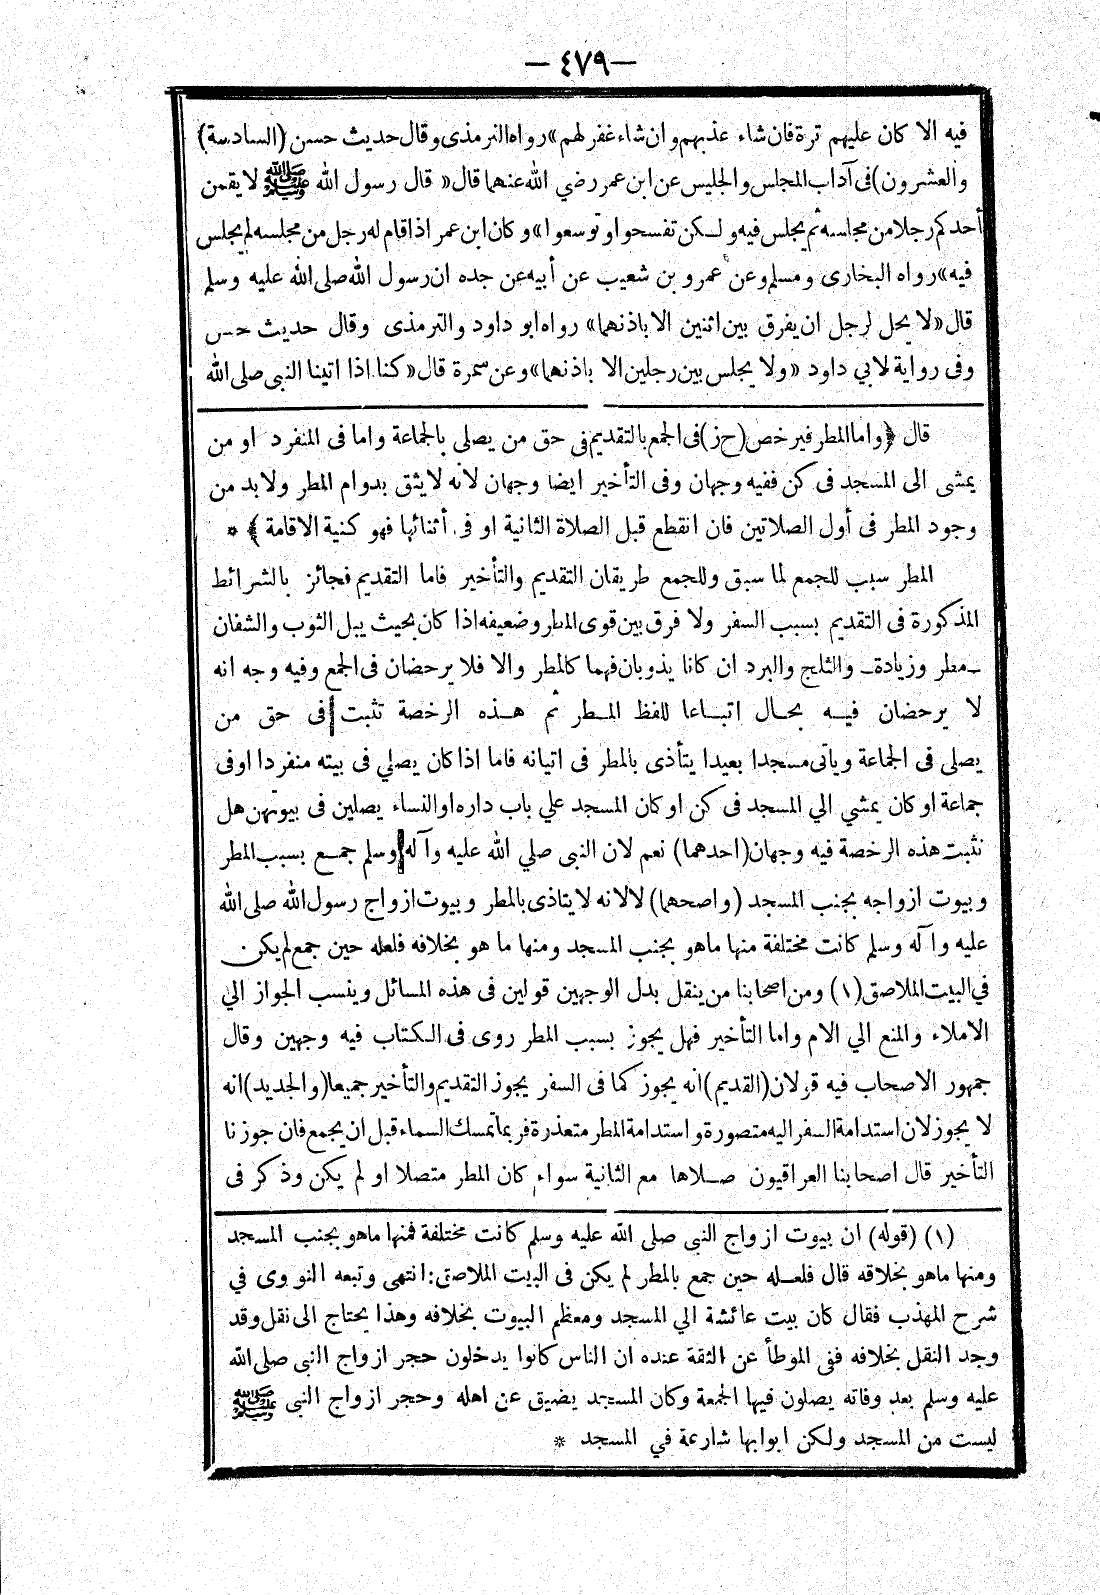 — ٤٧٩ —
فيه الا كان عليهم ترة فان شاء عذبهم وان شاء غفر لهم» رواه الترمذى وقال حديث حسن (السادسة)
والعشرون) فى آداب المجلس والجليس عن ابن عمر رضي الله عنهما قال « قال رسول الله ﷺ لا يقمن
أحدكم رجلا من مجلسه ثم يجلس فيه ولـكن تفسحوا وتوسعوا» وكان ابن عمر اذا قام له رجل من مجلسه لم يجلس
فيه» رواه البخارى ومسلم وعن عمرو بن شعيب عن أبيه عن جده ان رسول الله صلى الله عليه وسلم
قال «لا يحل لرجل ان يفرق بين اثنين الا باذنهما» رواه ابو داود والترمذى وقال حديث حسن
وفى رواية لابي داود «ولا يجلس بين رجلين الا باذنهما» وعن سمرة قال «كنا اذا اتينا النبى صلى الله
قال ﴿واما المطر فيرخص (ح ز) فى الجمع بالتقديم فى حق من يصلى بالجماعة واما فى المنفرد او من
يمشى الى المسجد فى كن ففيه وجهان وفى التأخير ايضا وجهان لانه لا يثق بدوام المطر ولا بد من
وجود المطر فى أول الصلاتين فان انقطع قبل الصلاة الثانية او فى أثنائها فهو كنية الاقامة ﴾ *
المطر سبب للجمع لما سبق وللجمع طريقان التقديم والتأخير فاما التقديم فجائز بالشرائط
المذكورة فى التقديم بسبب السفر ولا فرق بين قوى المطر وضعيفه اذا كان بحيث يبل الثوب والشفان
ـ مطر وزيادة ـ والثلج والبرد ان كانا يذوبان فهما كالمطر والا فلا يرخصان فى الجمع وفيه وجه انه
لا يرخصان فيـه بحـال اتبـاعا للفظ المـطر ثم هـذه الرخصة تثبت فى حق من
يصلى فى الجماعة وياتى مسجدا بعيدا يتأذى بالمطر فى اتيانه فاما اذا كان يصلي فى بيته منفردا او فى
جماعة او كان يمشي الي المسجد فى كن او كان المسجد علي باب داره او النساء يصلين فى بيوتهن هل
تثبت هذه الرخصة فيه وجهان (احدهما) نعم لان النبى صلي الله عليه وآله وسلم جمـع بسبب المطر
وبيوت ازواجه بجنب المسجد (واصحهما) لا لانه لا يتاذى بالمطر وبيوت ازواج رسول الله صلى الله
عليه وآله وسلم كانت مختلفة منها ما هو بجنب المسجد ومنها ما هو بخلافه فلعله حين جمع لم يكن
في البيت الملاصق (١) ومن اصحابنا من ينقل بدل الوجهين قولين فى هذه المسائل وينسب الجواز الي
الاملاء والمنع الي الام واما التأخير فهل يجوز بسبب المطر روى فى الكتاب فيه وجهين وقال
جمهور الاصحاب فيه قولان (القديم) انه يجوز كما فى السفر يجوز التقديم والتأخير جميعا (والجديد) انه
لا يجوز لان استدامة السفر اليه متصورة واستدامة المطر متعذرة فربما تمسك السماء قبل ان يجمع فان جوزنا
التأخير قال اصحابنا العراقيون صـلاها مع الثانية سواء كان المطر متصلا او لم يكن وذكر فى
(١) (قوله) ان بيوت ازواج النبى صلى الله عليه وسلم كانت مختلفة فمنها ما هو بجنب المسجد
ومنها ما هو بخلافه قال فلعـله حين جمع بالمطر لم يكن فى البيت الملاصق: انتهى وتبعه النووى في
شرح المهذب فقال كان بيت عائشة الي المسجد ومعظم البيوت بخلافه وهذا يحتاج الى نقل وقد
وجد النقل بخلافه ففى الموطأ عن الثقة عنده ان الناس كانوا يدخلون حجر ازواج النبى صلى الله
عليه وسلم بعد وفاته يصلون فيها الجمعة وكان المسجد يضيق عن اهله وحجر ازواج النبى ﷺ
ليست من المسجد ولكن ابوابها شارعة في المسجد *